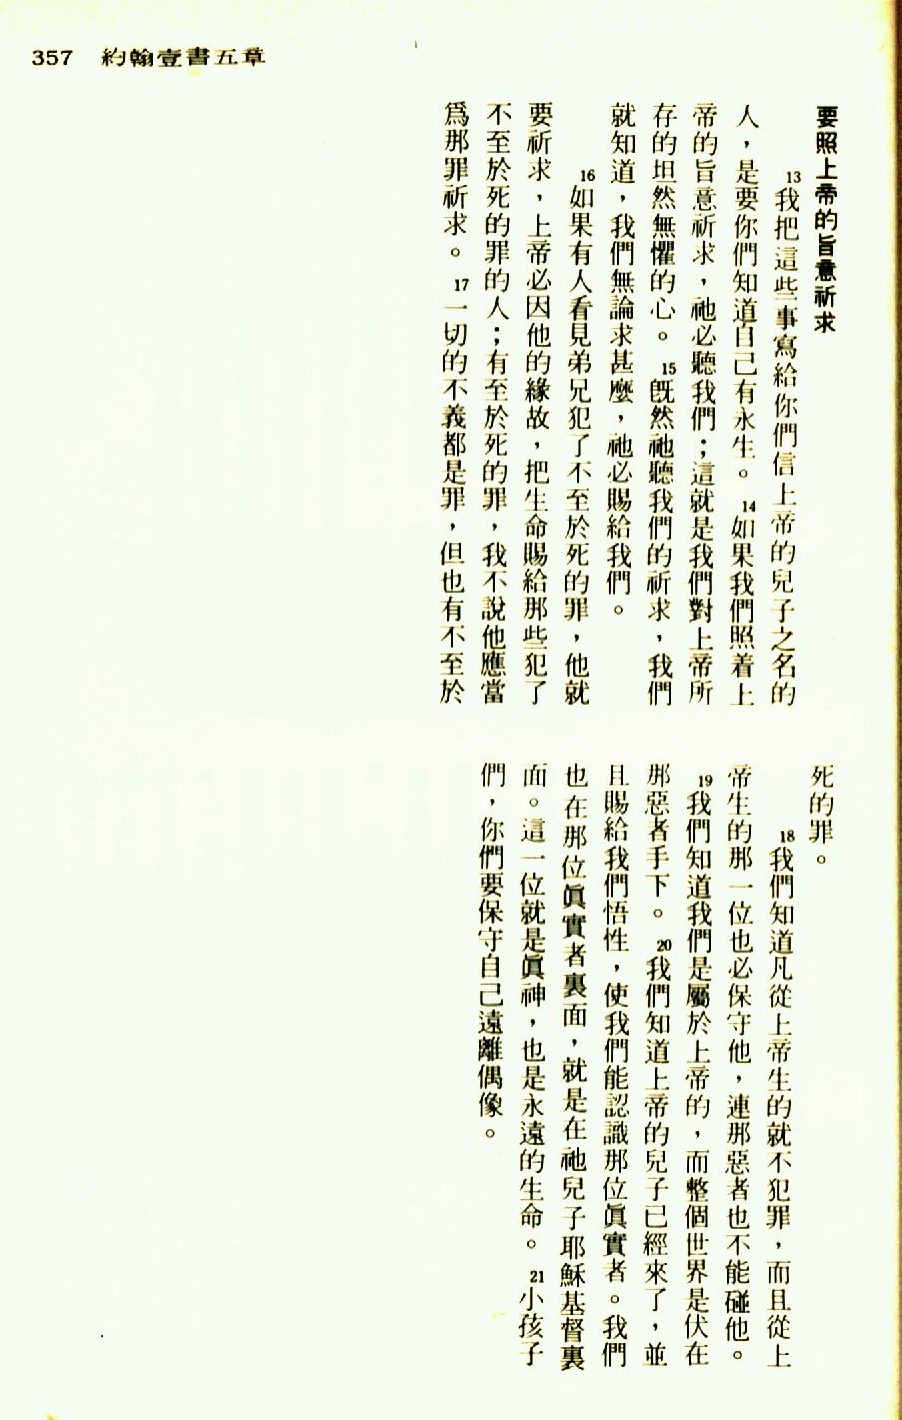 357 約翰壹書五章
要照上帝的旨意祈求
13我把這些事寫給你們信上帝的兒子之名的
人，是要你們知道自己有永生。14如果我們照着上
帝的旨意祈求，祂必聽我們；這就是我們對上帝所
存的坦然無懼的心。15旣然祂聽我們的祈求，我們
就知道，我們無論求甚麼，祂必賜給我們。
16如果有人看見弟兄犯了不至於死的罪，他就
要祈求，上帝必因他的緣故，把生命賜給那些犯了
不至於死的罪的人；有至於死的罪，我不說他應當
爲那罪祈求。17一切的不義都是罪，但也有不至於
死的罪。
18我們知道凡從上帝生的就不犯罪，而且從上
帝生的那一位也必保守他，連那惡者也不能碰他。
19我們知道我們是屬於上帝的，而整個世界是伏在
那惡者手下。20我們知道上帝的兒子已經來了，並
且賜給我們悟性，使我們能認識那位眞實者。我們
也在那位眞實者裏面，就是在祂兒子耶穌基督裏
面。這一位就是眞神，也是永遠的生命。21小孩子
們，你們要保守自己遠離偶像。